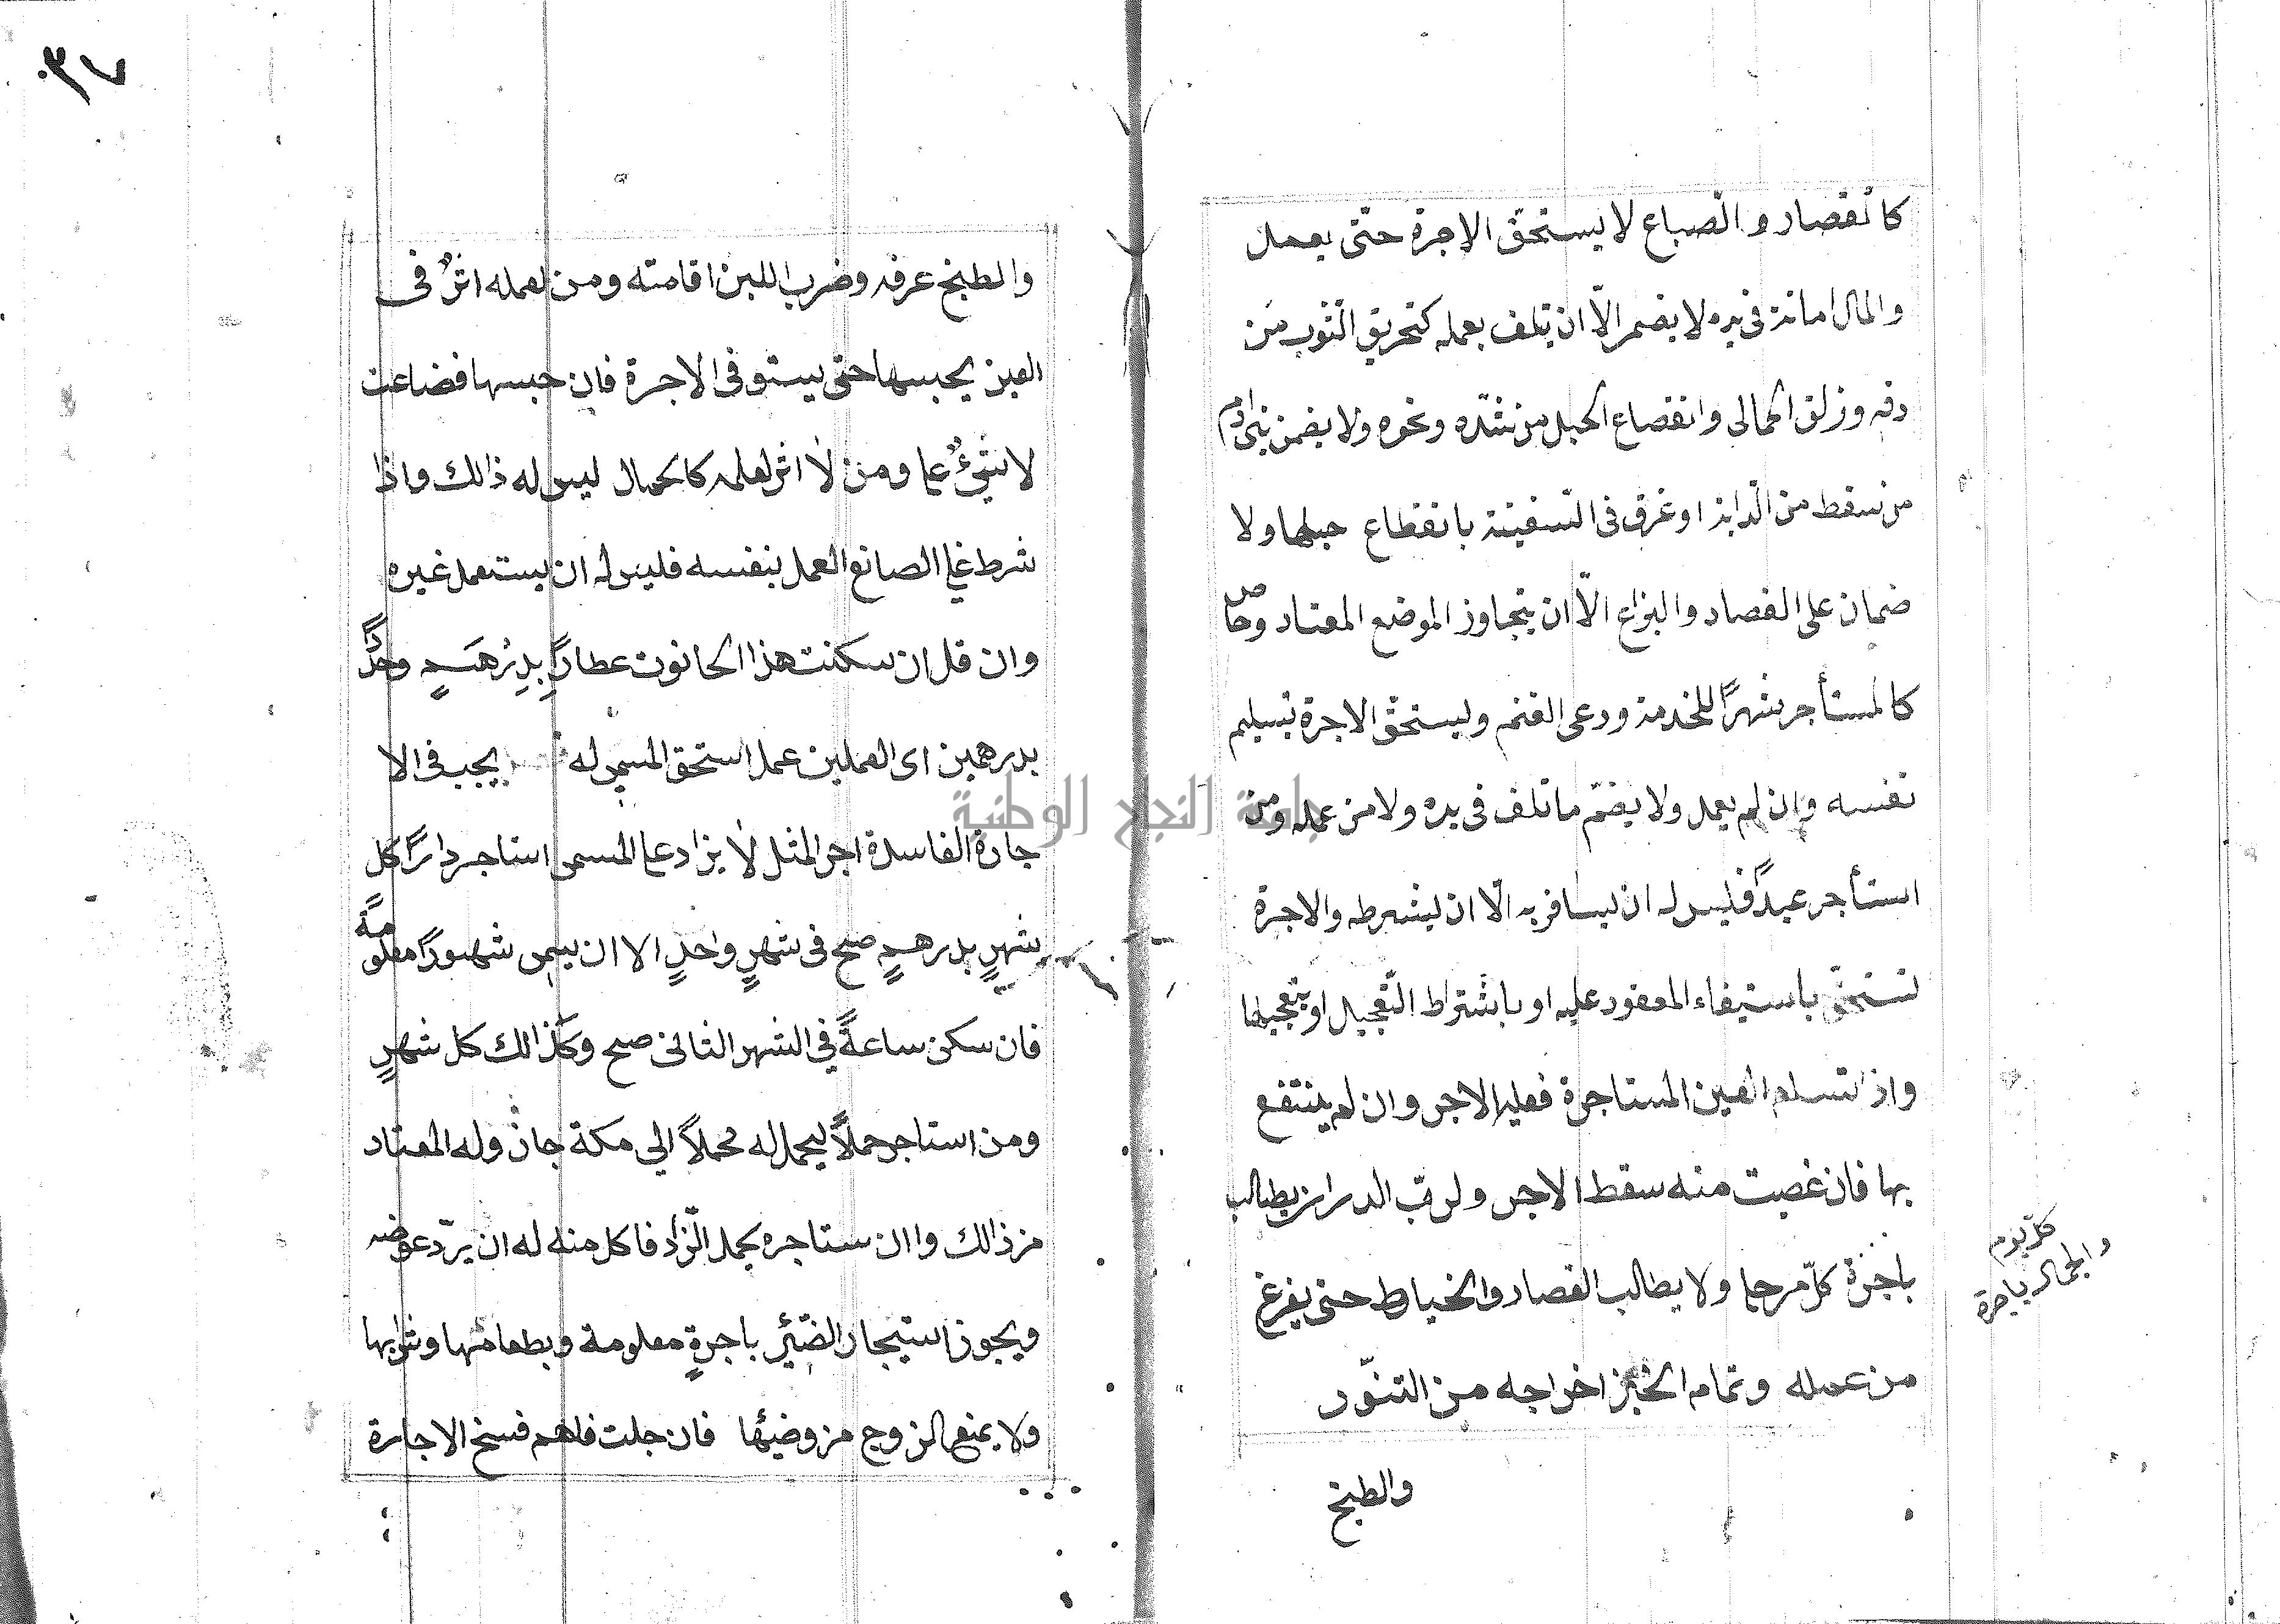 كالقصار والصباع لا يستحق الاجرة حتى يعمل
والمال امانة فى يده لا يضمن الّا ان يتلف بعمله كتحريق الثوب من
دقه وزلق الحمال وانقصاع الحبل من شدّه ونحوه ولا يضمن بنى ادم
من سقط من الدابة او غرق فى السفينة بانقطاع حبلها ولا
ضمان على الفصاد والبزاغ الّا ان يتجاوز الموضع المعتاد وخاص
كالمستأجر شهرًا للخدمة ورعى الغنم ويستحق الاجرة بتسليم
نفسه وان لم يعمل ولا يضمن ما تلف فى يده ولا من عمله ومن
استأجر عبدًا فليس له ان يسافر به الّا ان يشرطه والاجرة
تستحق باستيفاء المعقود عليه او باشتراط التعجيل او بتعجيلها
واذا تسلم العين المستاجرة فعليه الاجر وان لم ينتفع
بها فان غصبت منه سقط الاجر ولربّ الدار ان يطالب
باجرة كلّ مرحلة ولا يطالب القصار والخياط حتى يفرغ
من عمله وتمام الخبز اخراجه من التنوّر
والطبخ
كلّ يوم
والجمال باجرة
٣٧
والطبخ عرفه وضرب اللبن اقامته ومن لعمله اثرٌ فى
العين يحبسها حتى يستوفى الاجرة فان حبسها فضاعت
لا شيءٌ علي ومن لا اثر لعمله كالحمال ليس له ذالك واذا
شرط على الصانع العمل بنفسه فليس له ان يستعمل غيره
وان قل ان سكنت هذا الحانوت عطارًا بدرهمٍ وحدّادًا
بدرهمين اى العملين عمل استحق المسمى له يجب فى الا
جارة الفاسدة اجر المثل لا يزاد على المسمى استاجر دارًا كل
شهرٍ بدرهمٍ صح فى شهرٍ واحدٍ الا ان يسمى شهورًا معلومةً
فان سكن ساعةً في الشهر الثانى صح وكذالك كل شهرٍ
ومن استاجر جملاً ليحمل له محملاً الي مكة جاز وله المعتاد
من ذالك وا ان ستاجره لحمل الزاد فاكل منه له ان يردّ عوضه
ويجوز استيجار الضّئير باجرةٍ معلومة وبطعامها وشرابها
ولا يمنع الزوج من وضيئها فان حبلت فلهم فسخ الاجارة
جامعة النجاح الوطنية